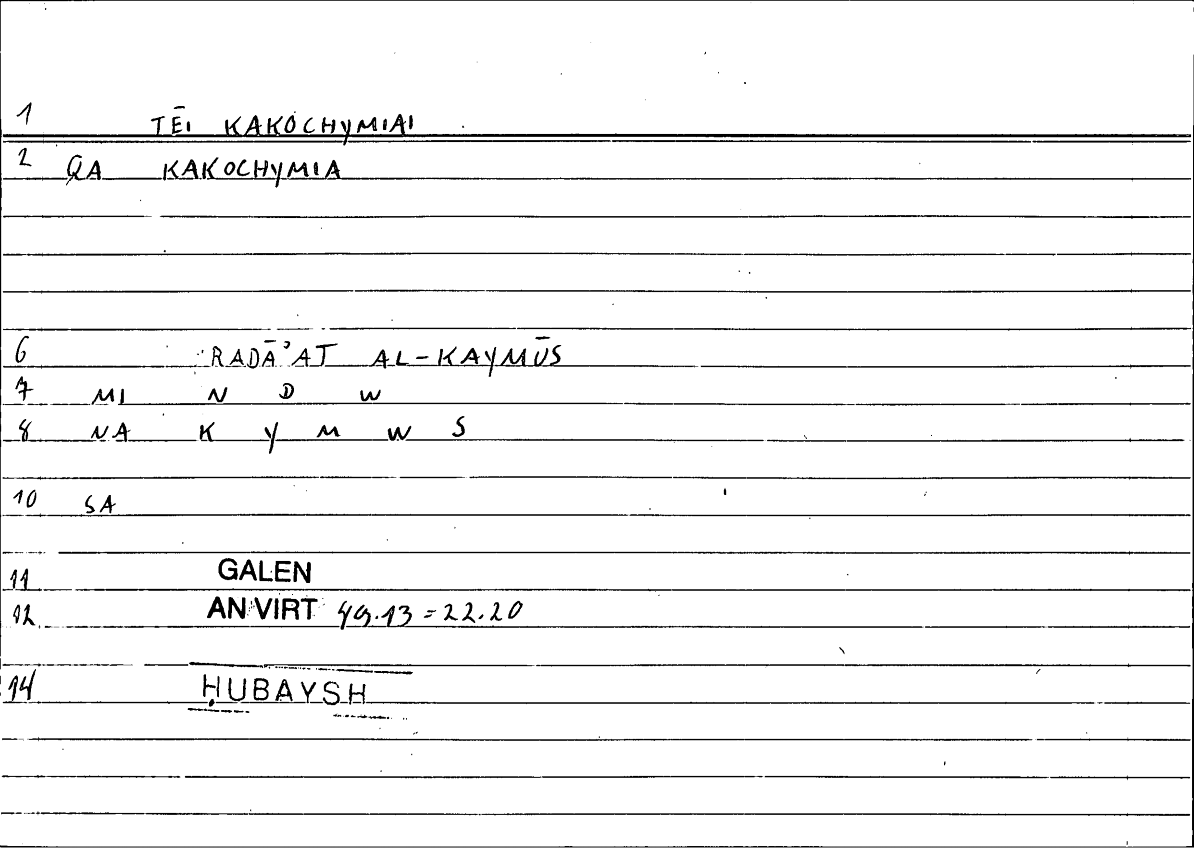 1 TĒI KAKOCHYMIAI
2 QA KAKOCHYMIA
6 RADĀ'AT AL-KAYMŪS
7 MI N D W
8 NA K Y M W S
10 SA
11 GALEN
12 AN VIRT 49.13=22.20
14 ḤUBAYSH